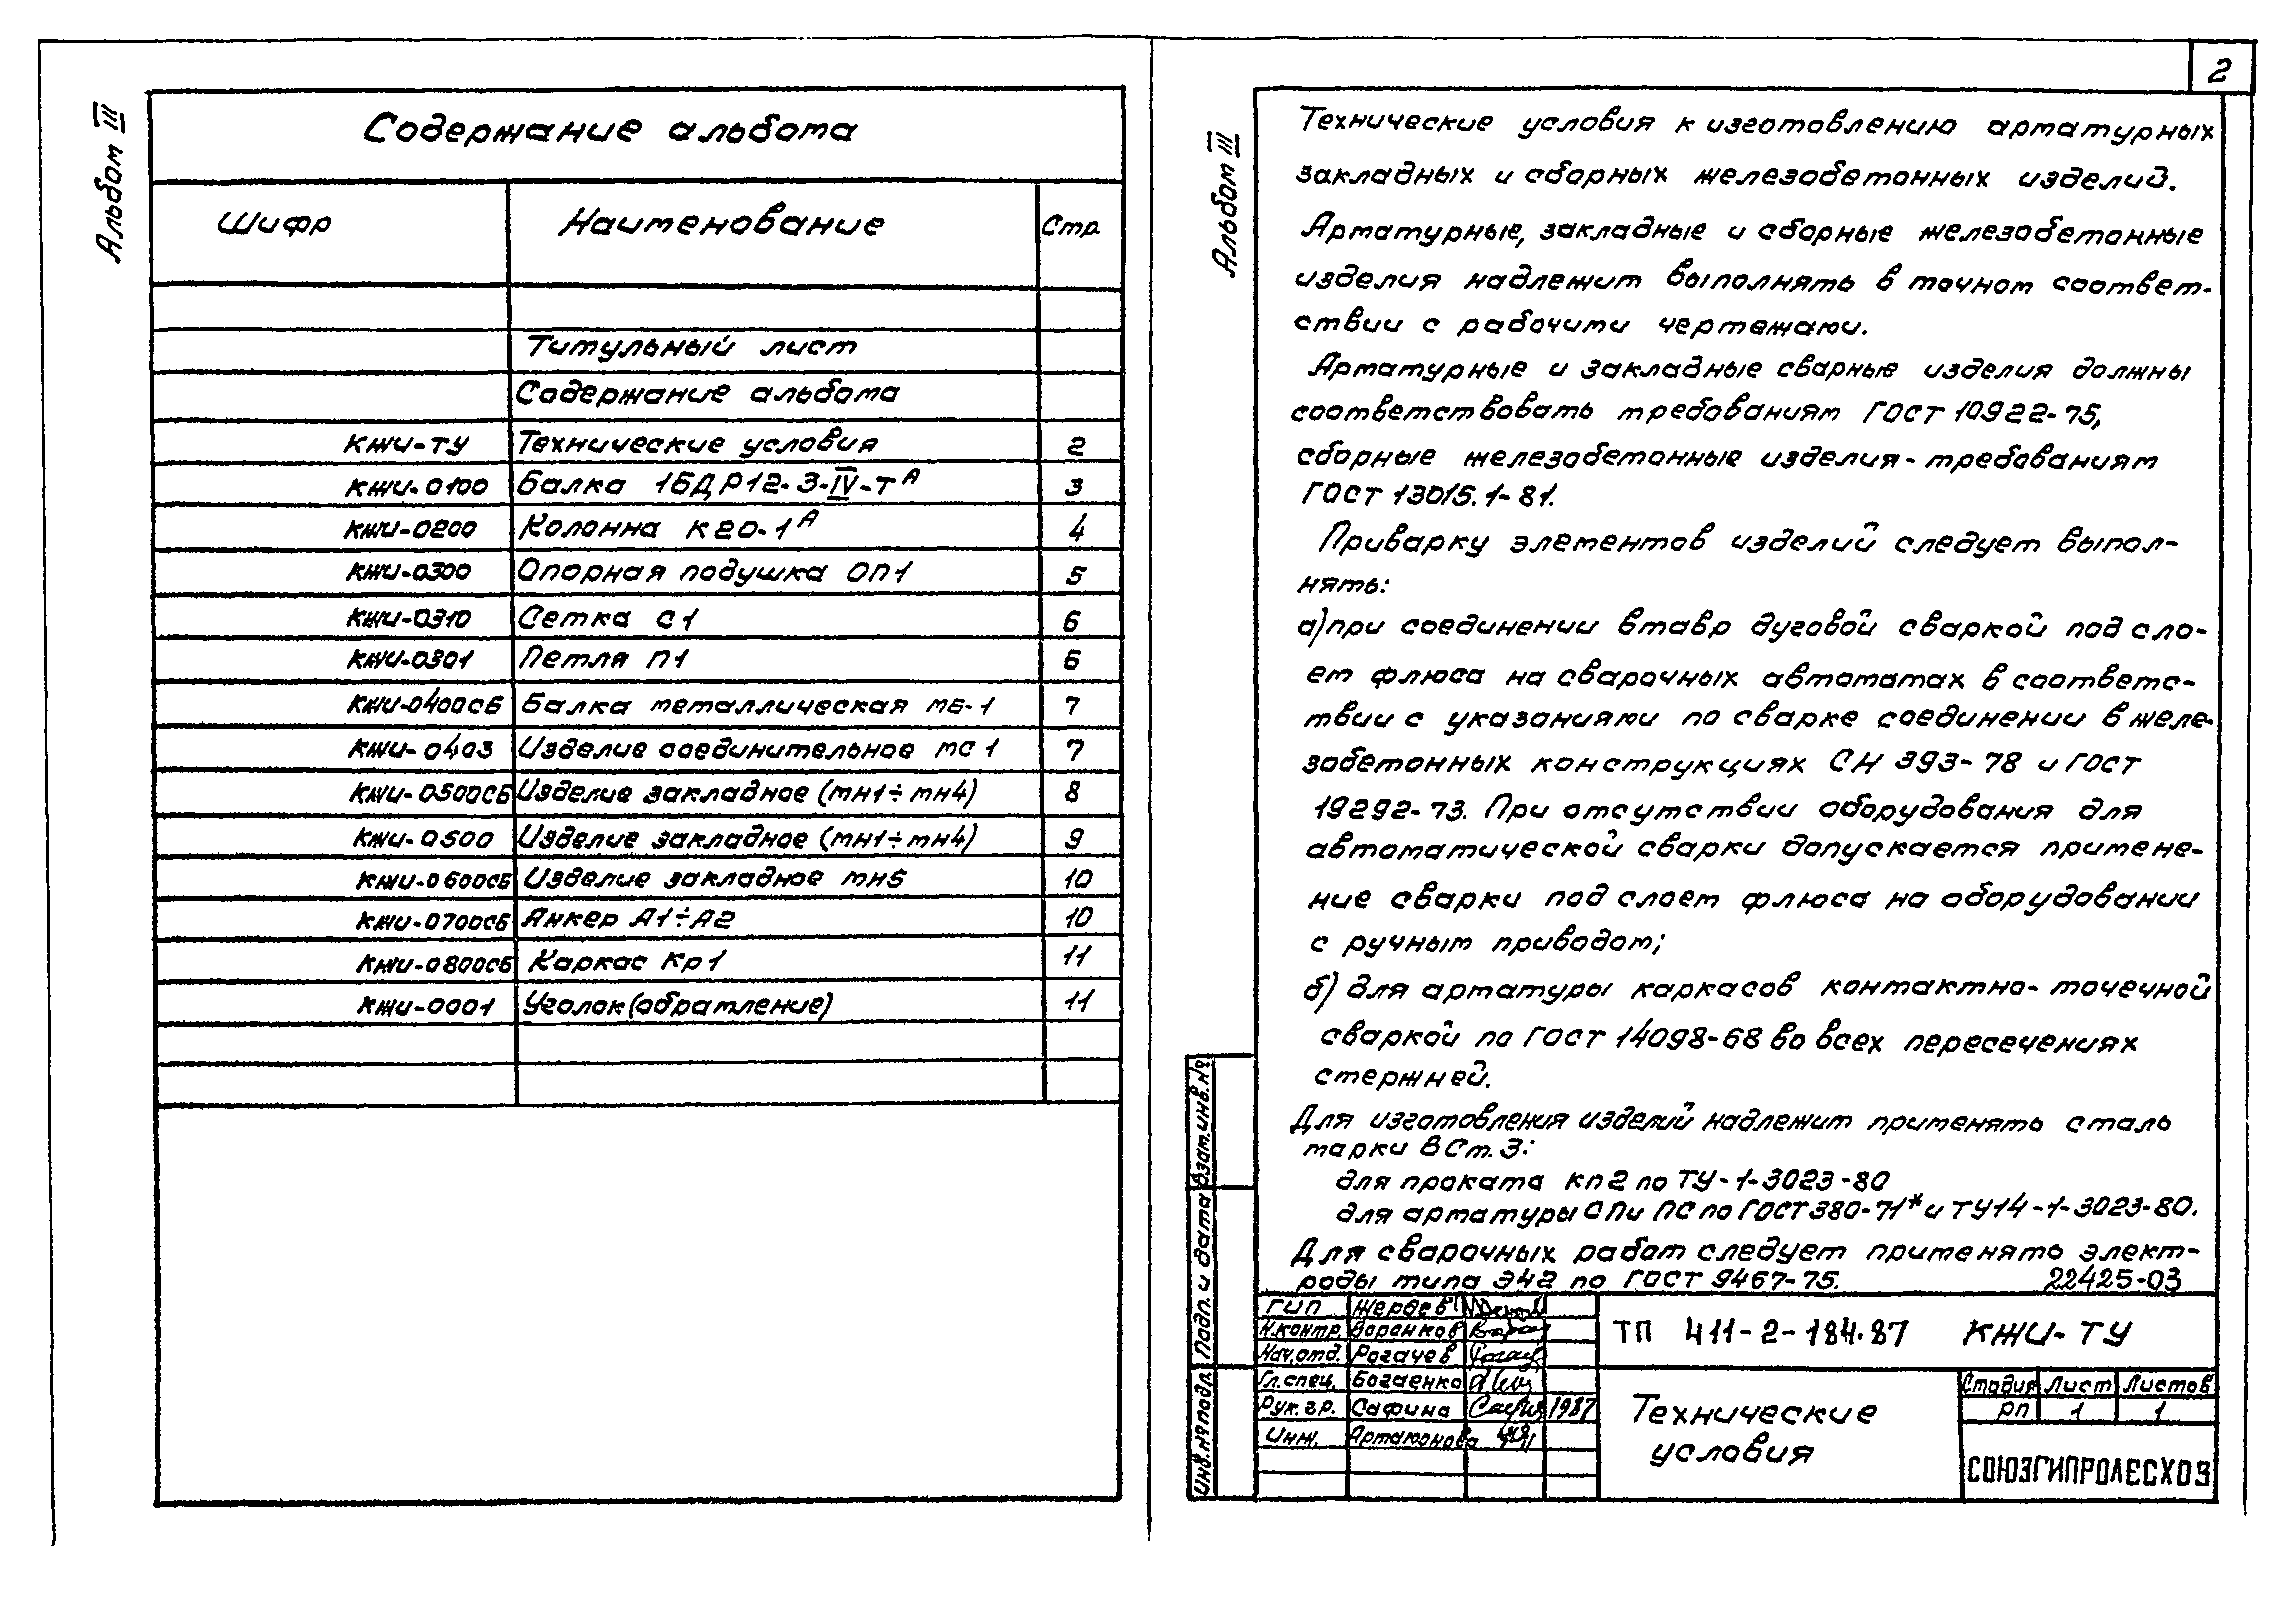 Альбом III
Содержание альбома
Шифр Наименование Стр.
Титульный лист
Содержание альбома
КЖИ-ТУ Технические условия 2
КЖИ-0100 Балка 1БДР12-3-IV-Т А 3
КЖИ-0200 Колонна К20-1 А 4
КЖИ-0300 Опорная подушка ОП1 5
КЖИ-0310 Сетка С1 6
КЖИ-0301 Петля П1 6
КЖИ-0400СБ Балка металлическая МБ-1 7
КЖИ-0403 Изделие соединительное МС1 7
КЖИ-0500СБ Изделие закладное (МН1÷МН4) 8
КЖИ-0500 Изделие закладное (МН1÷МН4) 9
КЖИ-0600СБ Изделие закладное МН5 10
КЖИ-0700СБ Анкер А1÷А2 10
КЖИ-0800СБ Каркас Кр1 11
КЖИ-0001 Уголок (обрамление) 11
2
Альбом III
Технические условия к изготовлению арматурных
закладных и сборных железобетонных изделий.
Арматурные, закладные и сборные железобетонные
изделия надлежит выполнять в точном соответ-
ствии с рабочими чертежами.
Арматурные и закладные сварные изделия должны
соответствовать требованиям ГОСТ 10922-75,
сборные железобетонные изделия-требованиям
ГОСТ 13015.1-81.
Приварку элементов изделий следует выпол-
нять:
а) при соединении втавр дуговой сваркой под сло-
ем флюса на сварочных автоматах в соответс-
твии с указаниями по сварке соединении в желе-
зобетонных конструкциях СН 393-78 и ГОСТ
19292-73. При отсутствии оборудования для
автоматической сварки допускается примене-
ние сварки под слоем флюса на оборудовании
с ручным приводом;
б) для арматуры каркасов контактно-точечной
сваркой по ГОСТ 14098-68 во всех пересечениях
стержней.
Для изготовления изделий надлежит применять сталь
марки ВСт.3:
для проката кп2 по ТУ-1-3023-80
для арматуры СП и ПС по ГОСТ 380-71* и ТУ14-1-3023-80.
Для сварочных работ следует применять элект-
роды типа Э42 по ГОСТ 9467-75. 22425-03
Взам.инв.№
Подп. и дата
Инв.№подл.
ГИП Жердев
Н.контр. Воронков
Нач.отд. Рогачев
Гл.спец. Богаенко
Рук.гр. Сафина 1987
Инж. Артамонова
ТП 411-2-184.87 КЖИ-ТУ
Технические
условия
Стадия Лист Листов
РП 1 1
СОЮЗГИПРОЛЕСХОЗ